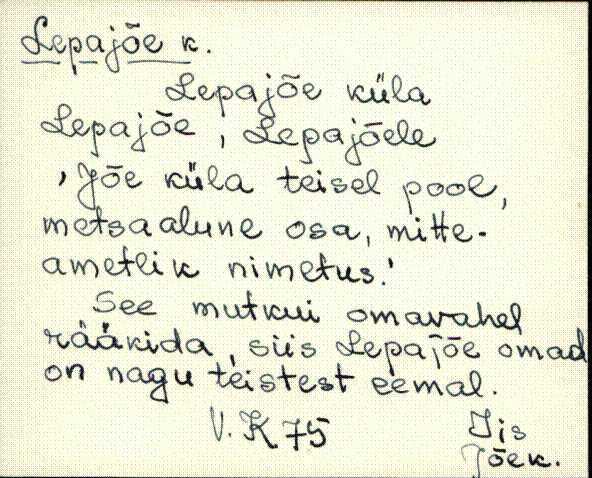 Lepajõe k.
Lepajõe küla
Lepajõe, Lepajõele
, Jõe küla teisel pool,
metsaalune osa, mitte-
ametlik nimetus.'
See mutkui omavahel
rääkida, siis Lepajõe omad
on nagu teistest eemal.
V. K. 75 Iis
Jõek.